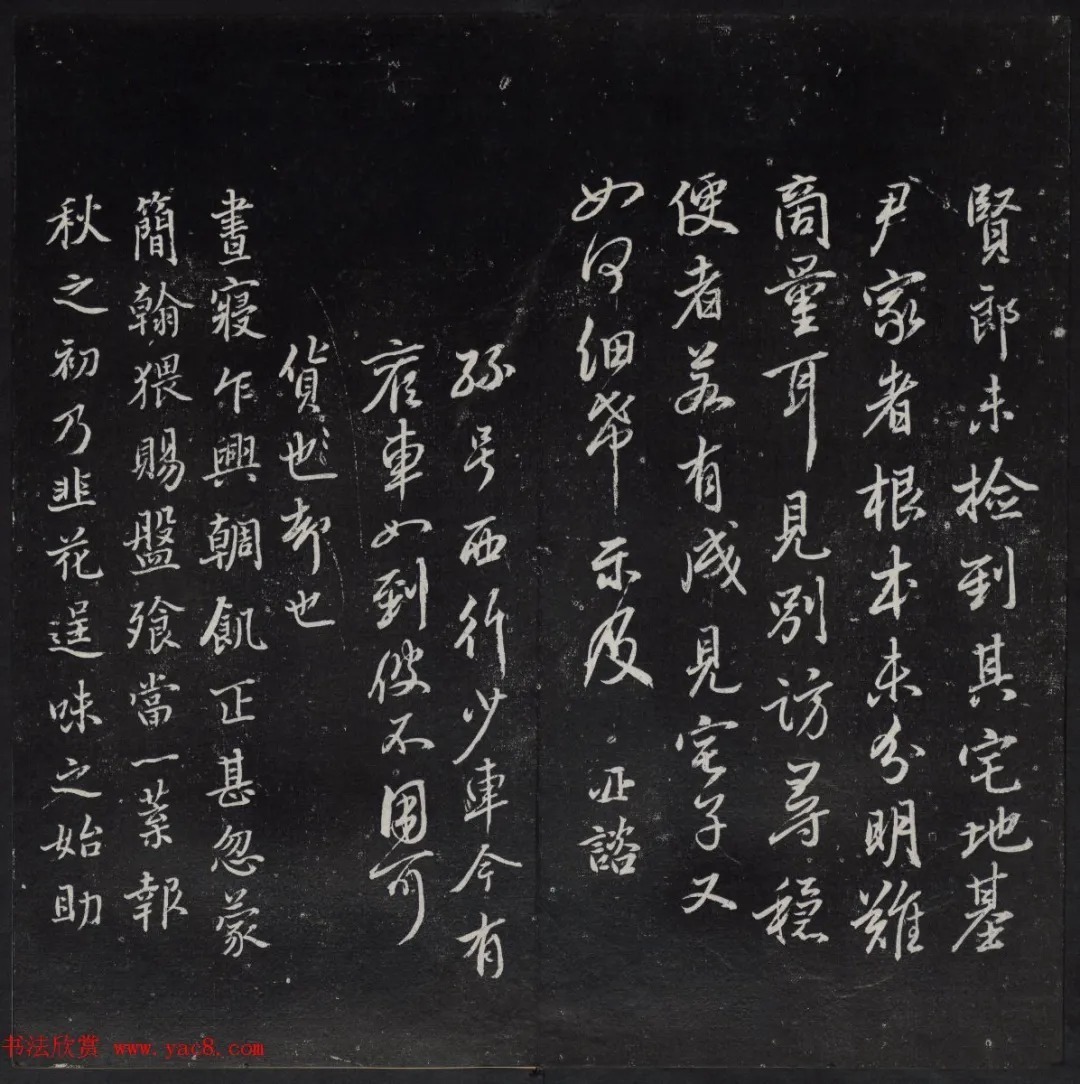 賢郎未捡到其宅地基
尹家者根本未分明難
商量耳見別访尋穏
便者若有成見宅子又
如何细希 示及 凝式諮
孫号西行少車今有
宿車如到彼不用可
貨也却也
晝寢乍興輖飢正甚忽蒙
簡翰猥賜盤飱當一葉報
秋之初乃韭花逞味之始助
书法欣赏 www.yac8.com